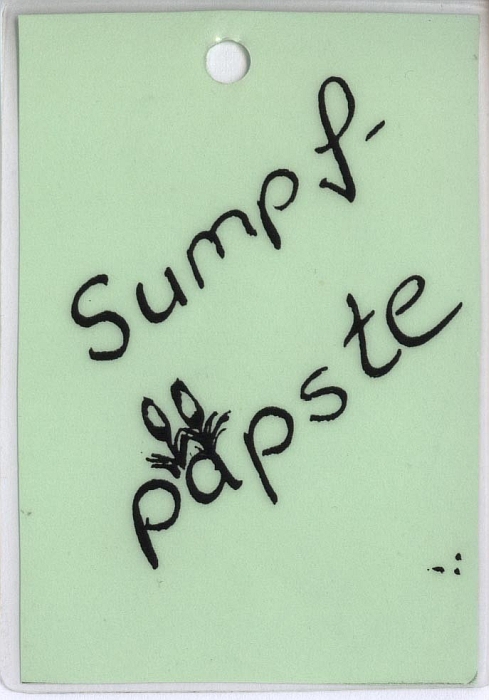 Sumpf-
papste